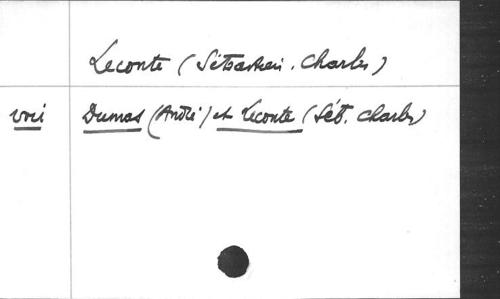 Leconte (Sébastien. Charles)
voir Dumas (André) et Leconte (Séb. Charles)